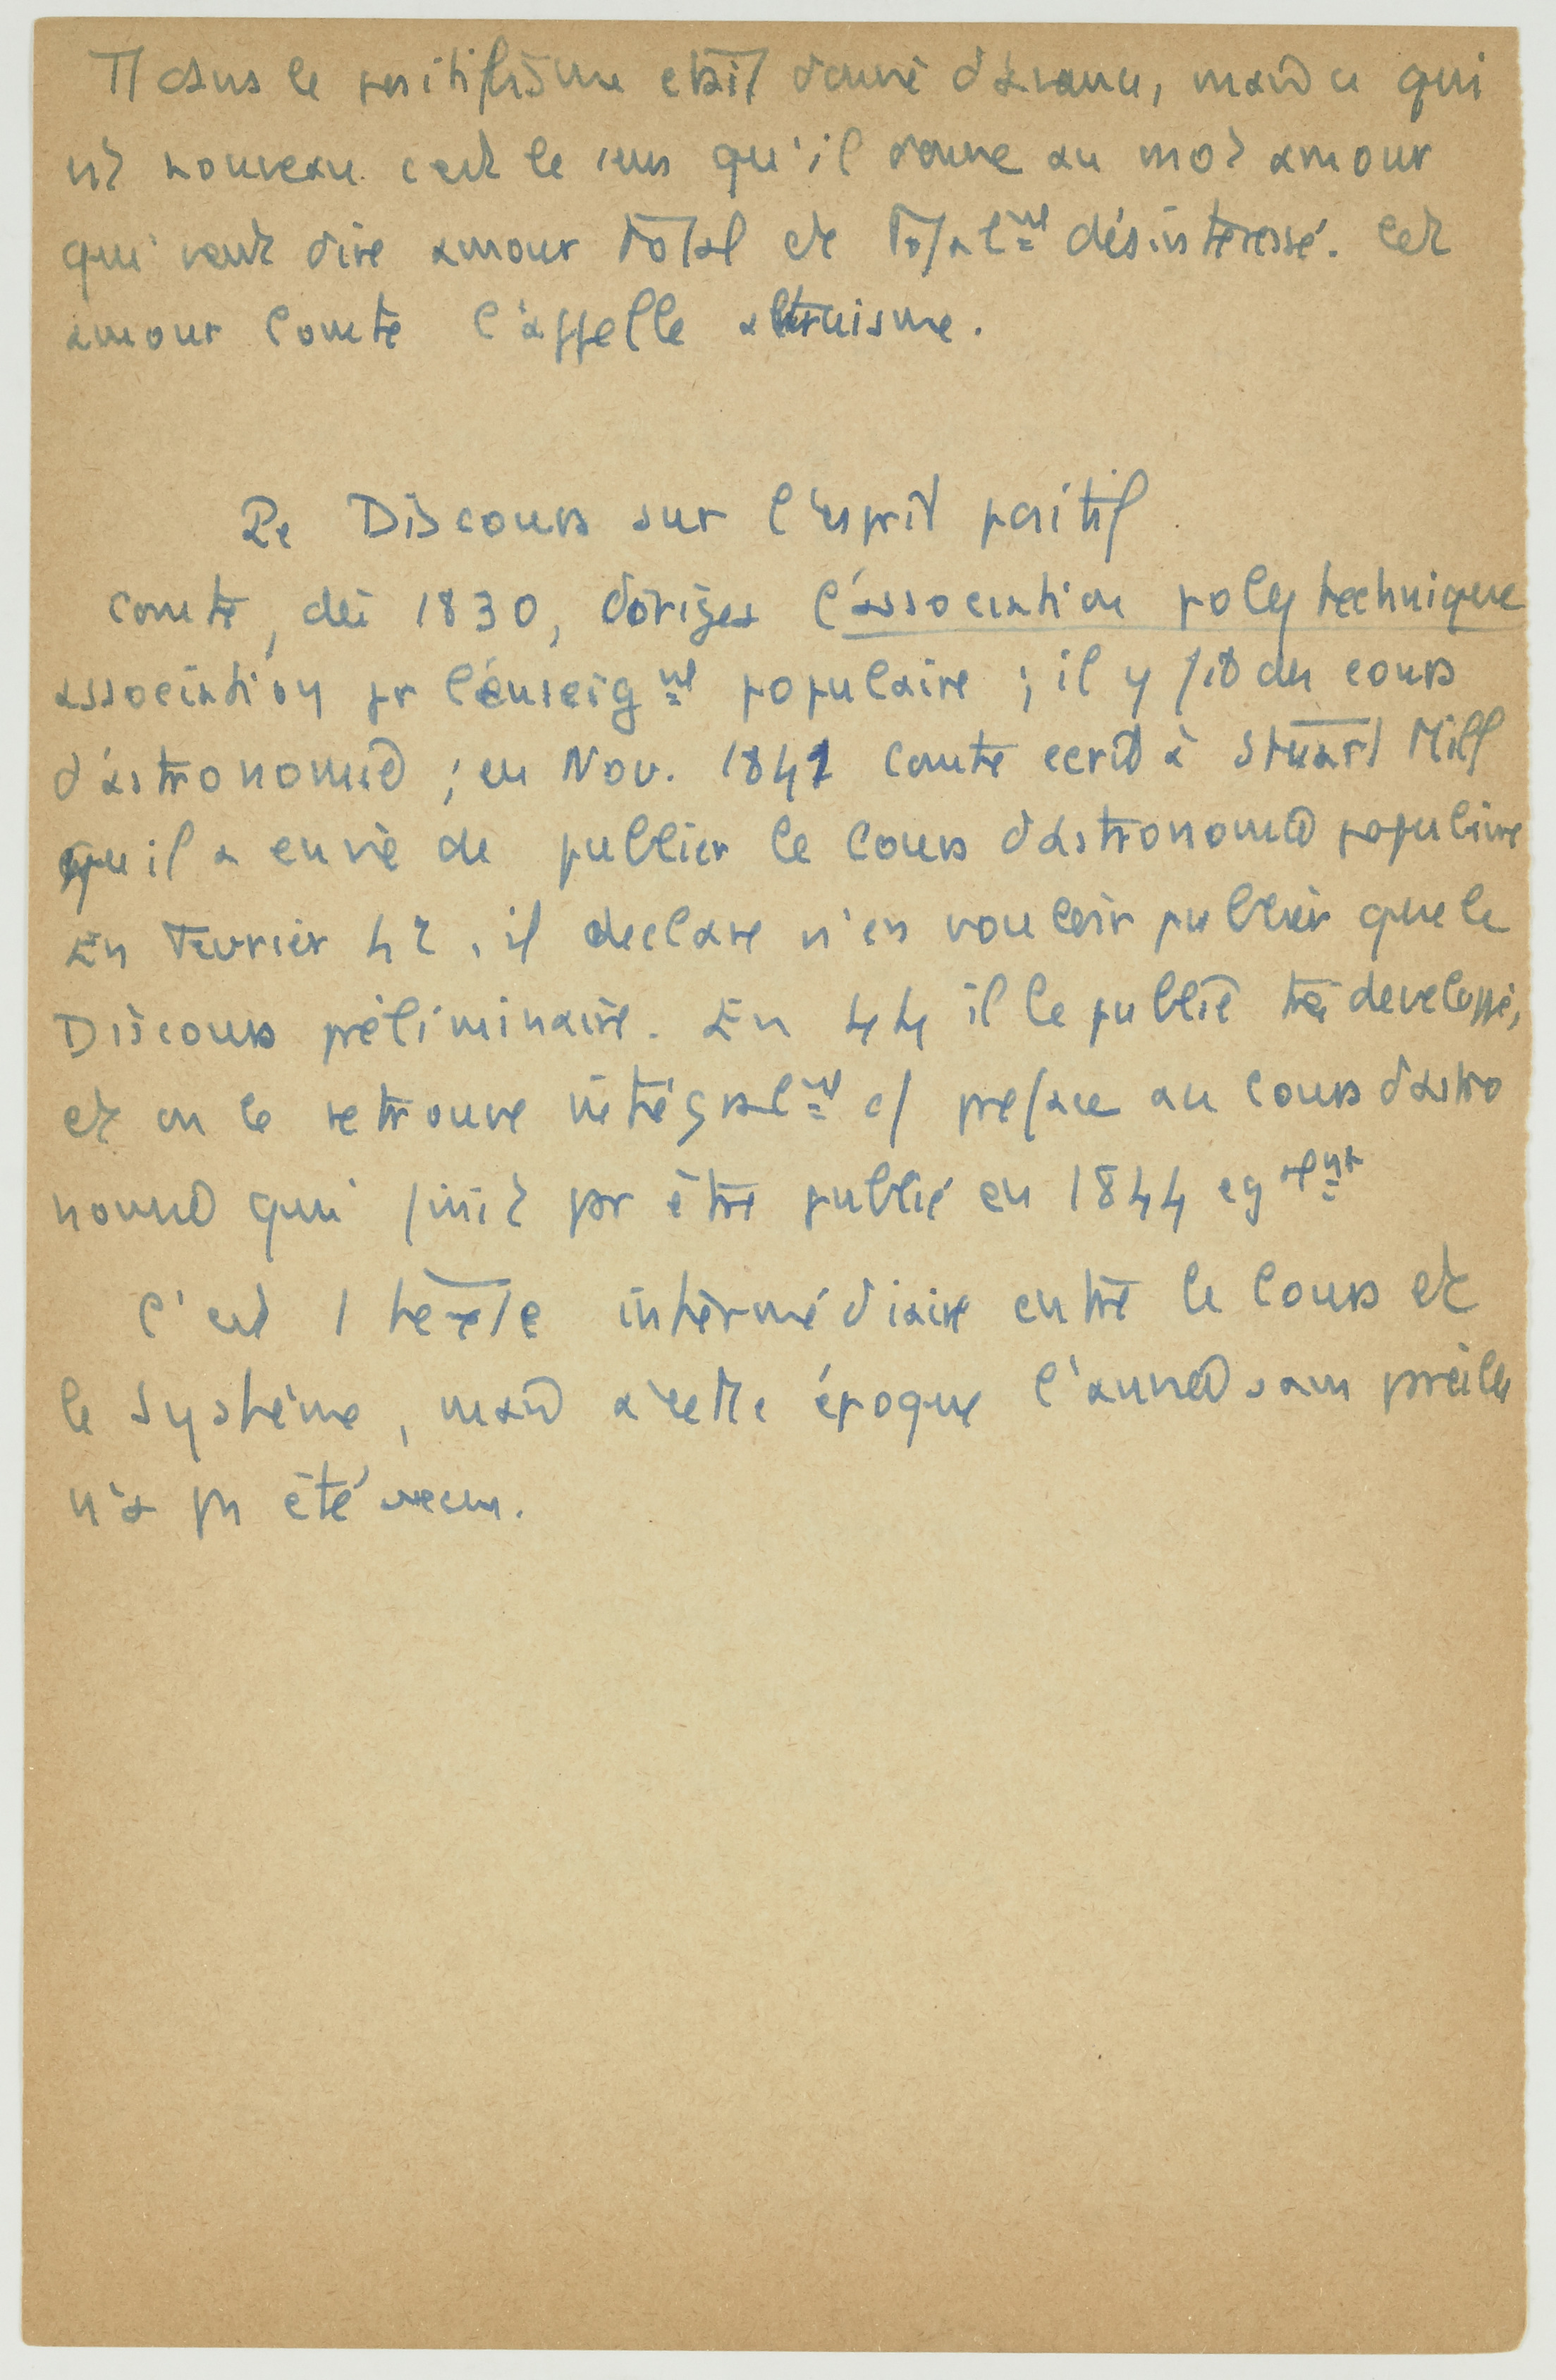 Tt dans le positivisme etait donné d'avance, mais ce qui
est nouveau c'est le sens qu'il donne au mot amour
qui veut dire amour total et totalmt désintéressé. Cet
amour Comte l'appelle altruisme.
Le Discours sur l'esprit positif
Comte, dès 1830, dirigea l'association polytechnique
association pr l'enseigmt populaire ; il y fit des cours
d'astronomie ; en Nov. 1841 Comte ecrit à Stuart Mill
qu'il a envie de publier le Cours d'astronomie populaire
En Fevrier 42, il declare n'en vouloir publier que le
Discours préliminaire. En 44 il le publie très developpé,
et on le retrouve intégralmt c/ preface au Cours d'astro
nomie qui finit pr être publié en 1844 eg elmt
C'est 1 texte intermédiaire entre le Cours et
le Système, mais à cette époque l'année sans pareille
n'a pas été vecue.